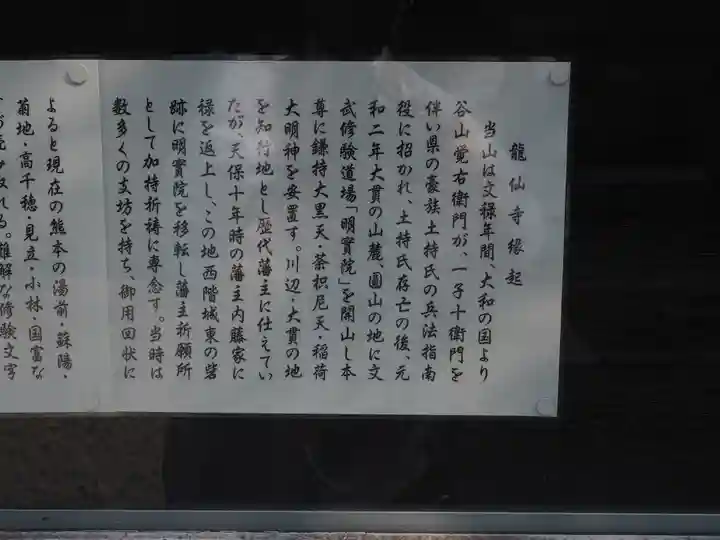 龍仙寺縁起
当山は文禄年間、大和の国より
谷山覚右衛門が、一子十衛門を
伴い県の豪族土持氏の兵法指南
役に招かれ、土持氏存亡の後、元
和二年大貫の山麓、圓山の地に文
武修験道場「明實院」を開山し本
尊に鎌持大黒天・荼枳尼天・稲荷
大明神を安置す。川辺・大貫の地
を知行地とし歴代藩主に仕えてい
たが、天保十年時の藩主内藤家に
禄を返上し、この地西階城東の砦
跡に明實院を移転し藩主祈願所
として加持祈祷に専念す。当時は
数多くの支坊を持ち、御用回状に
よると現在の熊本の湯前・蘇陽・
菊地・高千穂・見立・小林・国富な
読み取れる。難解な修験文字